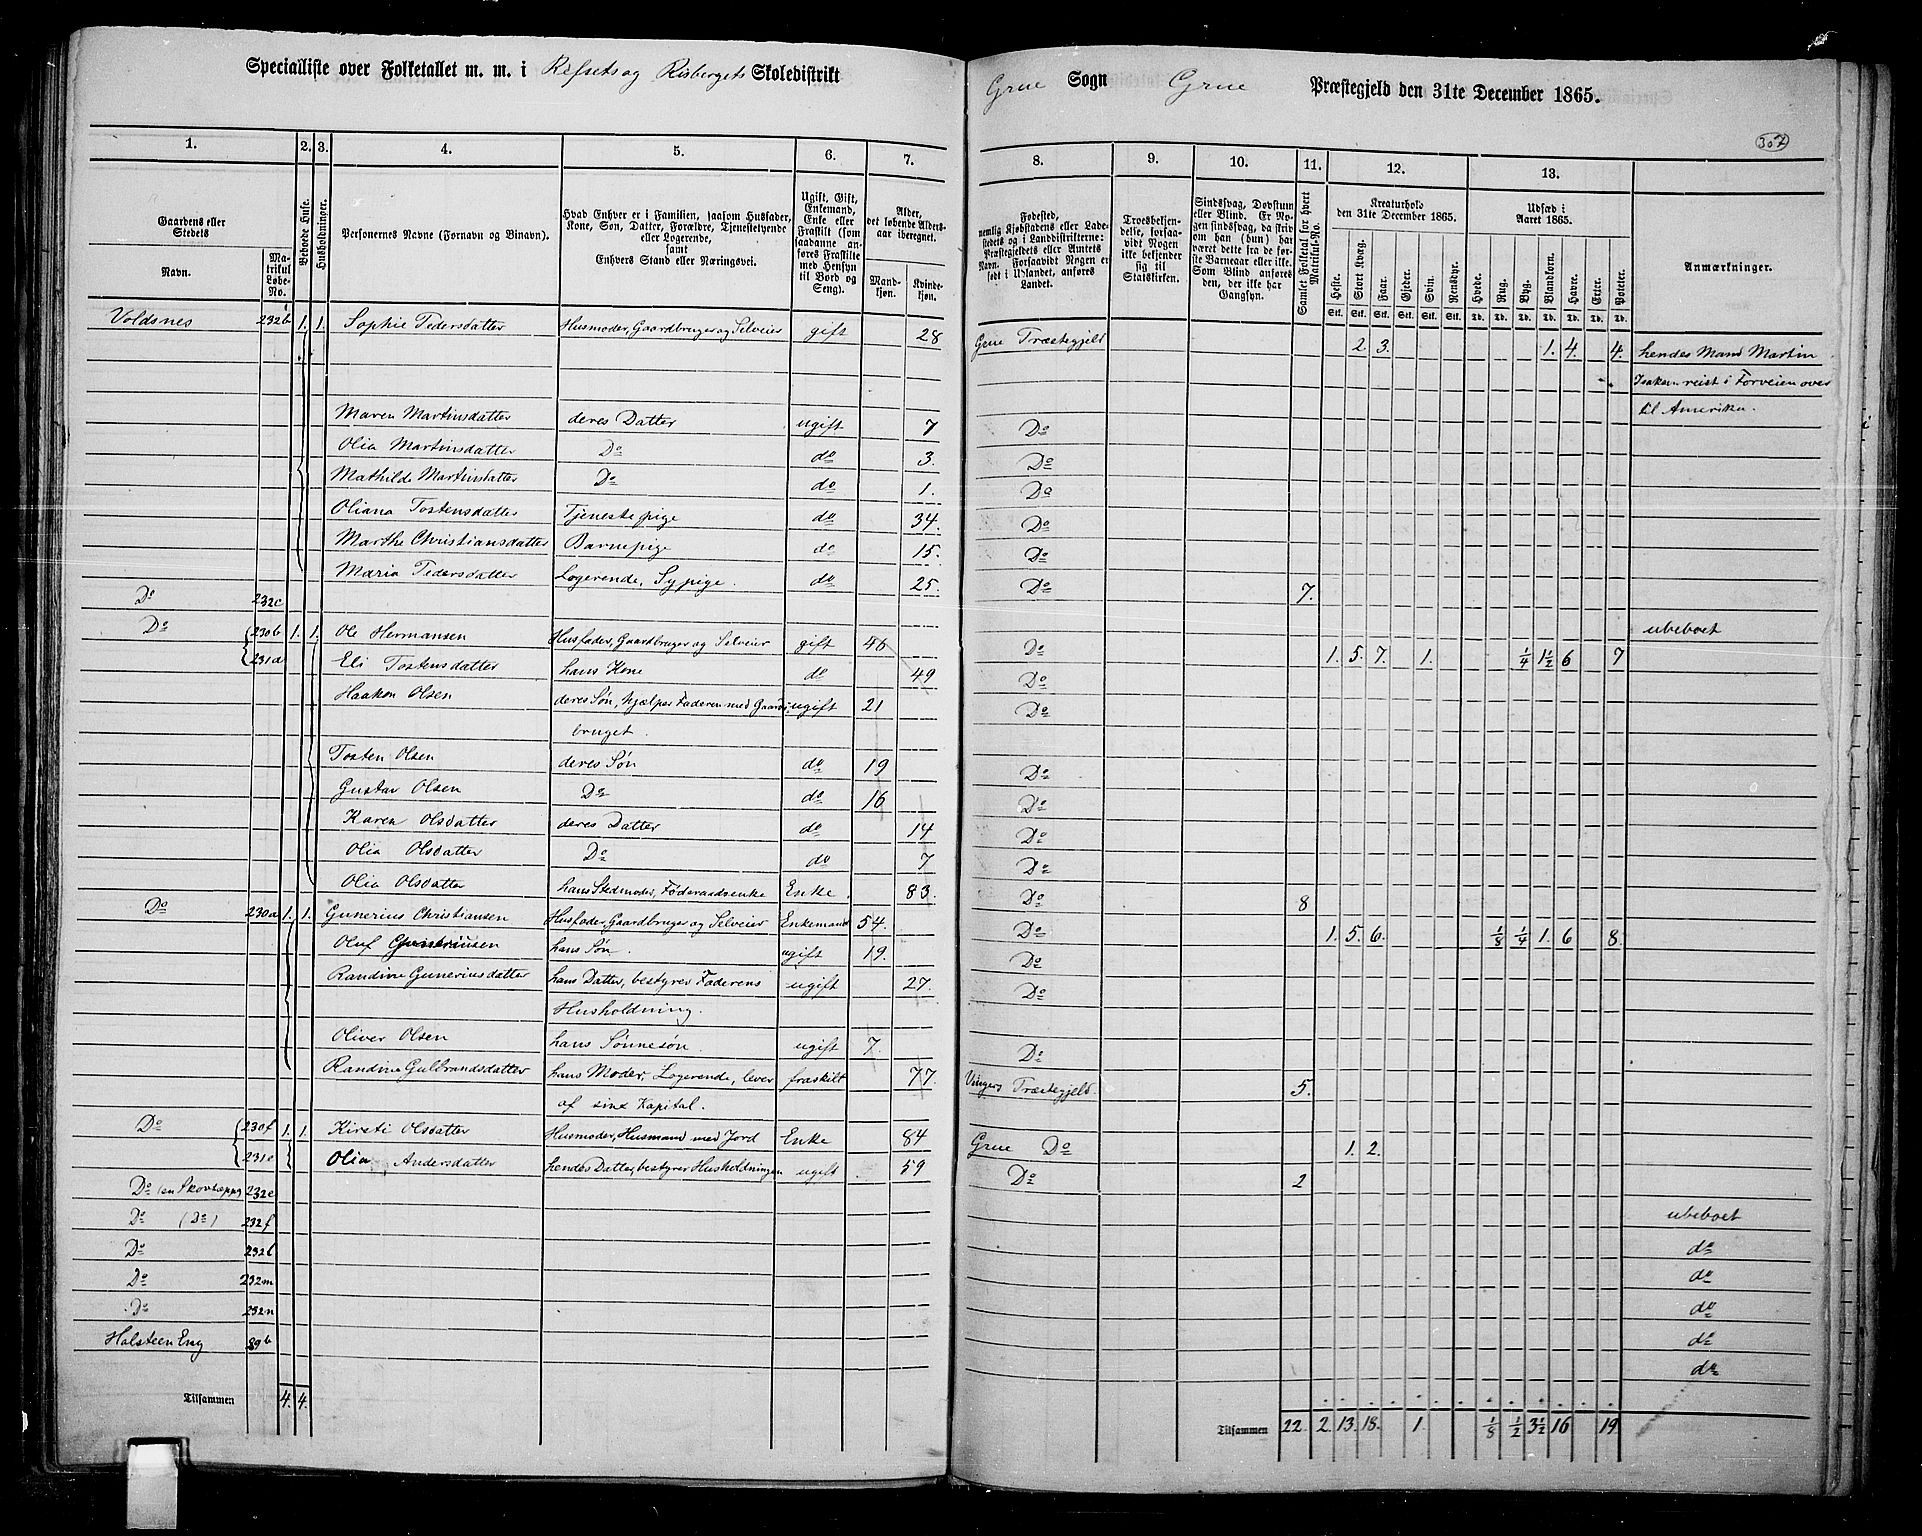 Specialliste over Folketallet m. m. i Refsets og Risbergets Skoledistrikt Grue Sogn Grue Præstegjeld den 31te December 1865.
307
1. 2. 3. 4. 5. 6. 7. 8. 9. 10. 11. 12. 13.
Gaardens eller Stedets
Navn.
Matrikul Løbe-No.
Beboede Huse.
Husholdninger.
Personernes Navne (Fornavn og Binavn).
Hvad Enhver er i Familien, saasom Husfader, Kone, Søn, Datter, Forældre, Tjenestetyende eller Logerende, samt Enhvers Stand eller Næringsvei.
Ugift, Gift, Enkemand, Enke eller Fraskilt (som saadanne anføres Fraskilte med Hensyn til Bord og Seng).
Alder, det løbende Aldersaar iberegnet.
Mandkjøn.
Kvindekjøn.
Fødested, nemlig Kjøbstadens eller Ladestedets og i Landdistrikterne: Præstegjeldets eller Amtets Navn. Forsaavidt Nogen er født i Udlandet, anføres Landet.
Troesbekjendelse, forsaavidt Nogen ikke bekjender sig til Statskirken.
Sindssvag, Døvstum eller Blind. Er Nogen sindssvag, da skrives om han (hun) har været dette fra de første Barneaar eller ikke. Som Blind anføres den, der ikke har Gangsyn.
Samlet Folketal for hvert Matrikul-No.
Kreaturhold den 31te December 1865.
Heste. Stort Kvæg. Faar. Gjeder. Svin. Rensdyr.
Stk. Stk. Stk. Stk. Stk. Stk.
Udsæd i Aaret 1865.
Hvede. Rug. Byg. Blandkorn. Havre. Erter. Poteter.
Td. Td. Td. Td. Td. Td. Td.
Anmærkninger.
Voldsnes 232b 1. 1. Sophie Pedersdatter Husmoder, Gaardbruger og Selveier gift 28 Grue Præstegjeld 2. 3. 1. 4. 4. hendes Mand Martin
Isaksen reist i Forveien over
til Amerika.
Maren Martinsdatter deres Datter ugift 7 Do
Olia Martinsdatter Do do 3. Do
Mathilde Martinsdatter Do do 1. Do
Oliana Tostensdatter Tjenestepige do 34 Do
Marthe Christiansdatter Barnepige do 15. Do
Maria Pedersdatter Logerende, Sypige. do 25. Do 7.
Do 232c ubeboet
Do 230b 1. 1. Ole Hermansen Husfader, Gaardbruger og Selveier gift 46 Do 1. 5. 7. 1. 1/4 1 1/2 6 7
231a Eli Tostensdatter hans Kone do 49 Do
Haakon Olsen deres Søn, hjælper Faderen med Gaards- ugift 21 Do
bruget.
Tosten Olsen deres Søn do 19 Do
Gustav Olsen Do do 16 Do
Karen Olsdatter deres Datter do 14 Do
Olia Olsdatter Do do 7 Do
Olia Olsdatter hans Stedmoder, Føderaadsenke Enke 83. Do 8
Do 230a 1. 1. Gunerius Christiansen Husfader, Gaardbruger og Selveier Enkemand 54. Do 1. 5. 6. 1/8 1/4 1. 6 8.
Oluf Guneriusen hans Søn. ugift 19. Do
Randine Guneriusdatter hans Datter, bestyrer Faderens ugift 27 Do
Husholdning.
Oliver Olsen hans Sønnesøn. ugift 7. Do
Randine Gulbrandsdatter hans Moder, Logerende, lever fraskilt 77. Vingers Præstegjeld. 5.
af sin Kapital.
Do 230f 1. 1. Kirsti Olsdatter Husmoder, Husmand med Jord Enke 84 Grue Do 1. 2.
231e Olia Andersdatter hendes Datter, bestyrer Husholdningen ugift 59 Do 2
Do (en Skovteppe 232e ubeboet
Do (Do) 232f do
Do 232l do
Do 232m do
Do 232n do
Holsteen Eng 89b do
Tilsammen 4. 4. Tilsammen 22. 2. 13. 18. 1. 1/8 1/2 3 1/2 16 19.